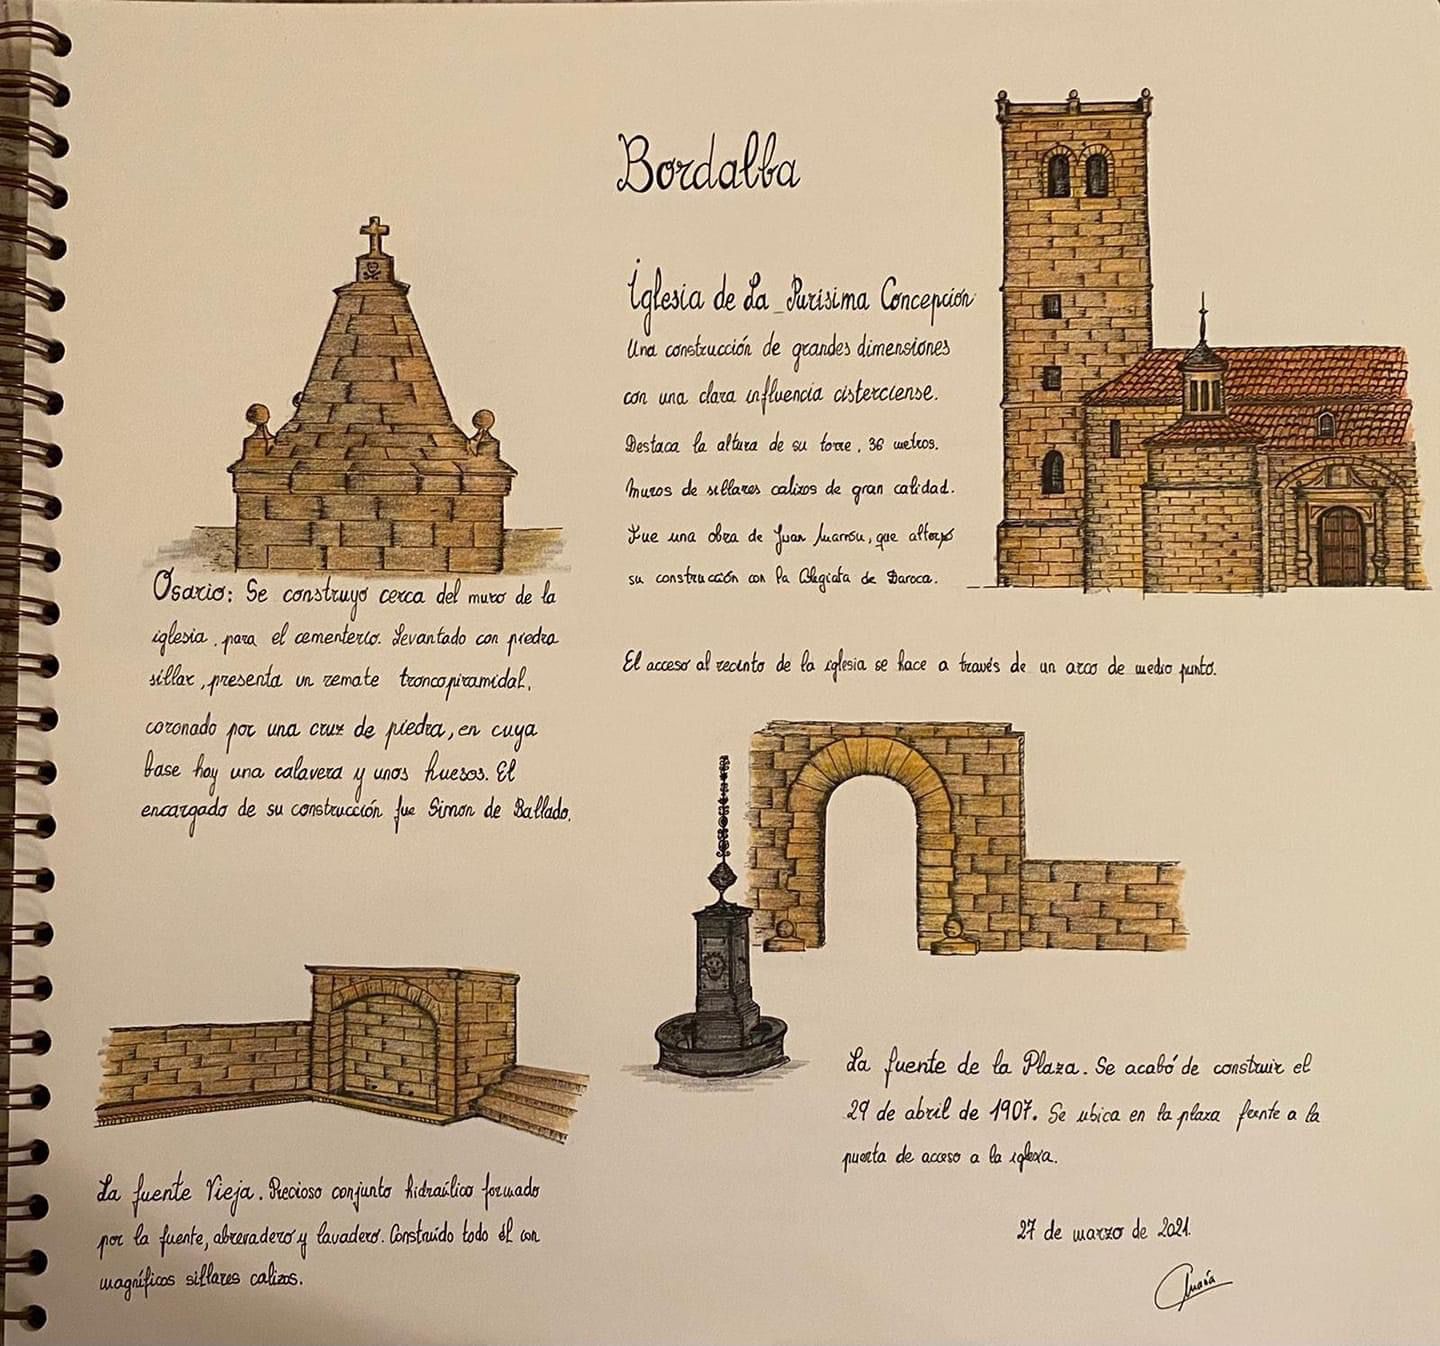 Bordalba
Iglesia de La Purísima Concepción
Una construcción de grandes dimensiones
con una clara influencia cisterciense.
Destaca la altura de su torre, 36 metros.
Muros de sillares calizos de gran calidad.
Fue una obra de Juan Marrón, que alternó
su construcción con la Colegiata de Daroca.
Osario: Se construyó cerca del muro de la
iglesia, para el cementerio. Levantado con piedra
sillar, presenta un remate troncopiramidal,
coronado por una cruz de piedra, en cuya
base hay una calavera y unos huesos. El
encargado de su construcción fue Simon de Ballado.
El acceso al recinto de la iglesia se hace a través de un arco de medio punto.
La fuente de la Plaza. Se acabó de construir el
29 de abril de 1907. Se ubica en la plaza frente a la
puerta de acceso a la iglesia.
La fuente Vieja. Precioso conjunto hidraúlico formado
por la fuente, abrevadero y lavadero. Construido todo él con
magníficos sillares calizos.
27 de marzo de 2021.